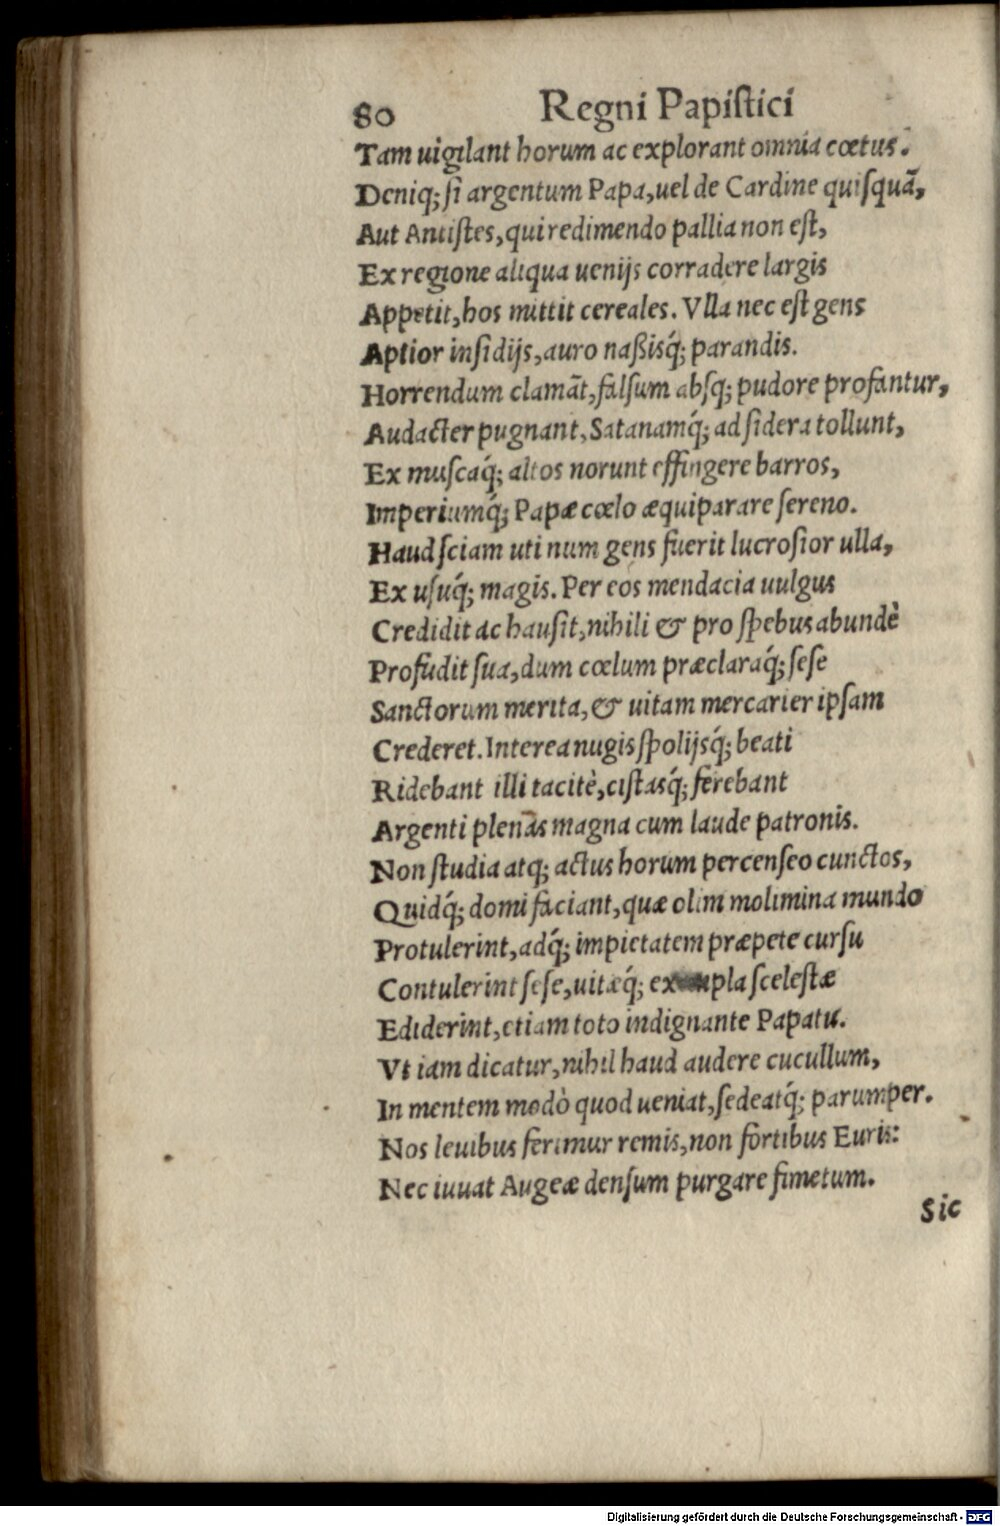 80 Regni Papiſtici
Tam uigilant horum ac explorant omnia cœtus.
Deniq; ſi argentum Papa, uel de Cardine quiſquã,
Aut Antiſtes, qui redimendo pallia non eſt,
Ex regione aliqua uenijs corradere largis
Appetit, hos mittit cereales. Vlla nec eſt gens
Aptior inſidijs, auro naßisq́; parandis.
Horrendum clamãt, falſum abſq; pudore profantur,
Audacter pugnant, Satanamq́; ad ſidera tollunt,
Ex muſcaq́; altos norunt effingere barros,
Imperiumq́; Papæ cœlo æquiparare ſereno.
Haud ſciam uti num gens fuerit lucroſior ulla,
Ex uſuq́; magis. Per eos mendacia uulgus
Credidit ac hauſit, nihili & pro ſpebus abundè
Profudit ſua, dum cœlum præclaraq́; ſeſe
Sanctorum merita, & uitam mercarier ipſam
Crederet. Interea nugis ſpolijsq́; beati
Ridebant illi tacitè, ciſtasq́; ferebant
Argenti plenas magna cum laude patronis.
Non ſtudia atq; actus horum percenſeo cunctos,
Quidq́; domi faciant, quæ olim molimina mundo
Protulerint, adq́; impietatem præpete curſu
Contulerint ſeſe, uitæq́; exempla ſceleſtæ
Ediderint, etiam toto indignante Papatu.
Vt iam dicatur, nihil haud audere cucullum,
In mentem modò quod ueniat, ſedeatq́; parumper.
Nos leuibus ferimur remis, non fortibus Euris:
Nec iuuat Augeæ denſum purgare fimetum.
Sic
Digitalisierung gefördert durch die Deutsche Forschungsgemeinschaft - DFG